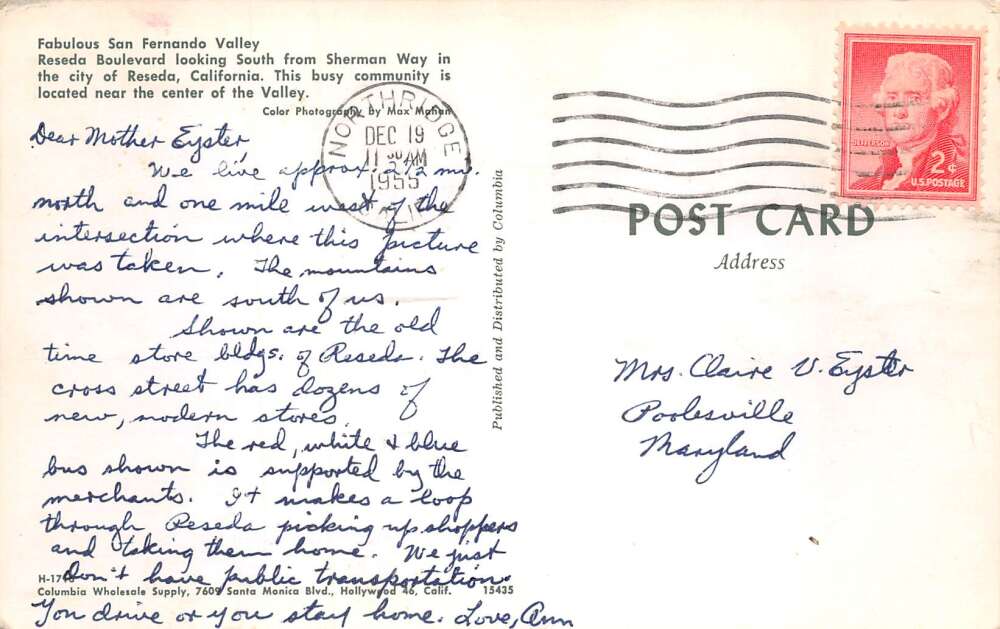 Fabulous San Fernando Valley
Reseda Boulevard looking South from Sherman Way in
the city of Reseda, California. This busy community is
located near the center of the Valley.
Color Photography by Max Mahan
NORTHRIDGE
DEC 19
11 30 AM
1955
CALIF.
Dear Mother Eyster,
We live approx. 2 1/2 mi.
north and one mile west of the
intersection where this picture
was taken. The mountains
shown are south of us.
Shown are the old
time store bldgs. of Reseda. The
cross street has dozens of
new, modern stores.
The red, white & blue
bus shown is supported by the
merchants. It makes a loop
through Reseda picking up shoppers
and taking them home. We just
don't have public transportation.
You drive or you stay home. Love, Ann
Columbia Wholesale Supply, 7609 Santa Monica Blvd., Hollywood 46, Calif. 15435
Published and Distributed by Columbia
JEFFERSON
2¢
U.S. POSTAGE
POST CARD
Address
Mrs. Claire V. Eyster
Poolesville
Maryland